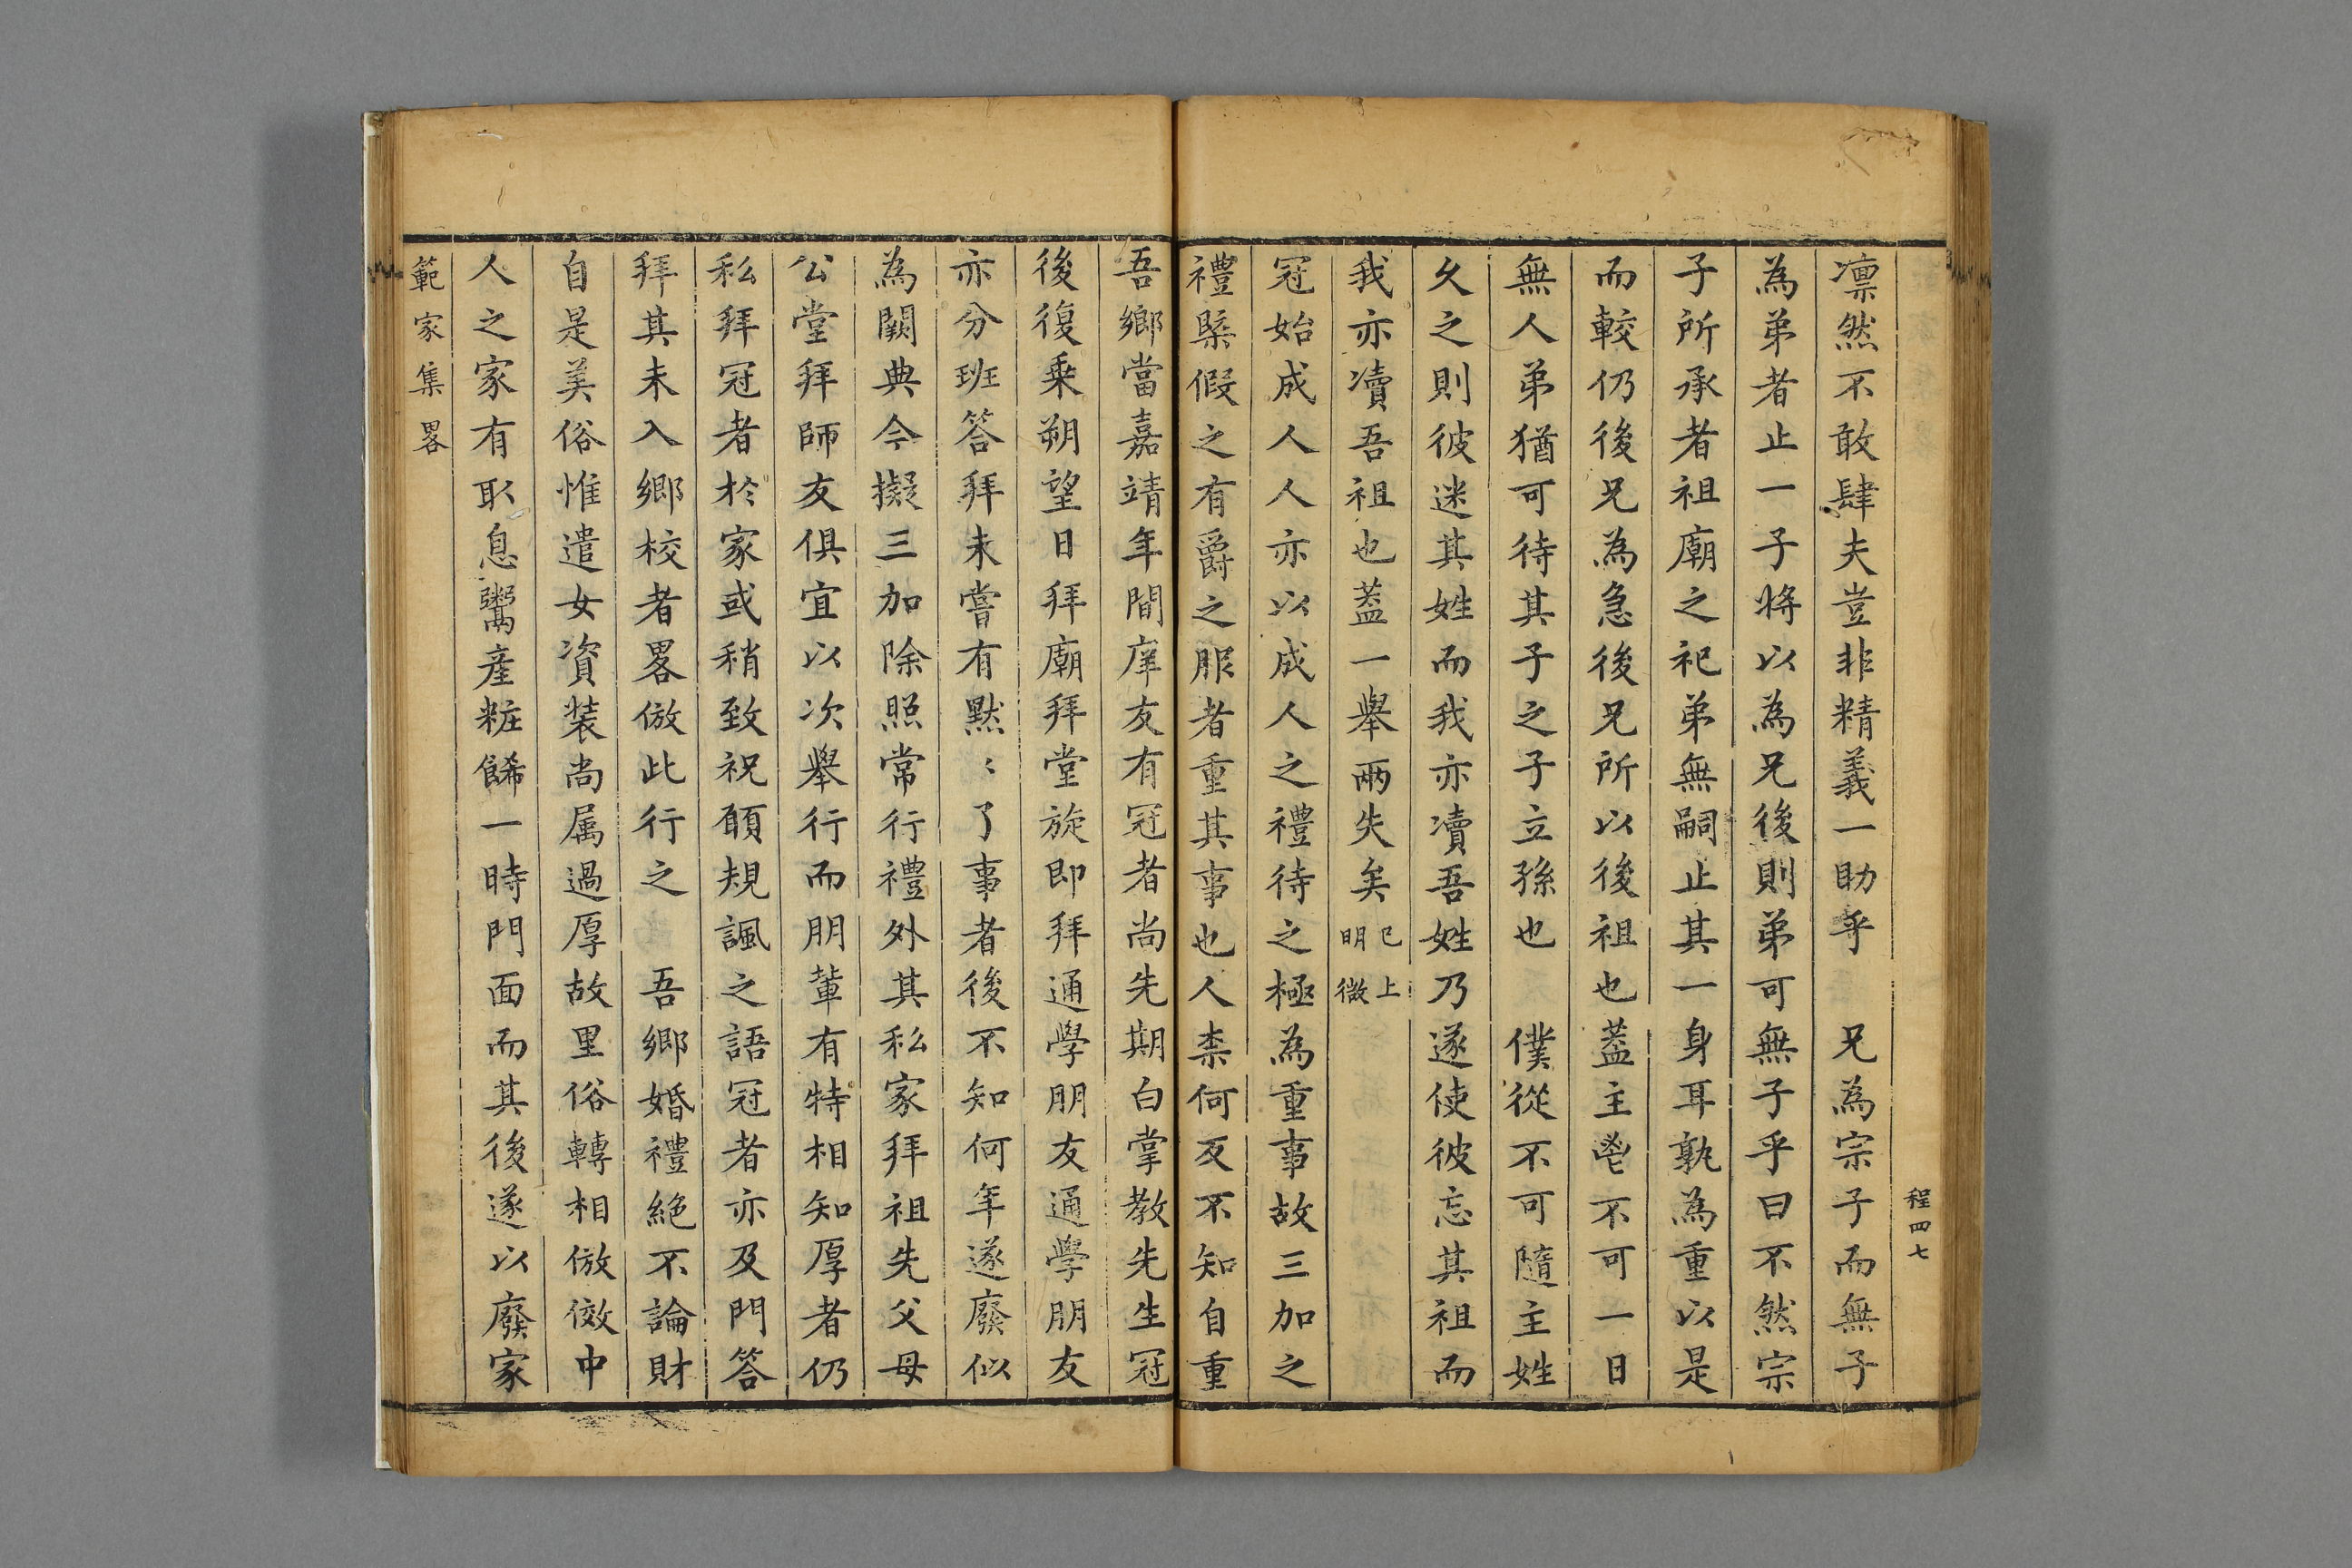 程四七
凛然不敢肆夫豈非精義一助乎　兄為宗子而無子
為弟者止一子將以為兄後則弟可無子乎曰不然宗
子所承者祖廟之祀弟無嗣止其一身耳孰為重以是
而較仍後兄為急後兄所以後祖也蓋主鬯不可一日
無人弟猶可待其子之子立孫也　僕從不可隨主姓
久之則彼迷其姓而我亦凟吾姓乃遂使彼忘其祖而
我亦凟吾祖也蓋一舉兩失矣已上明微
冠始成人人亦以成人之禮待之極為重事故三加之
禮槩假之有爵之服者重其事也人柰何反不知自重
吾鄉當嘉靖年間庠友有冠者尚先期白掌教先生冠
後復乗朔望日拜廟拜堂旋即拜通學朋友通學朋友
亦分班答拜未嘗有黙〻了事者後不知何年遂廢似
為闕典今擬三加除照常行禮外其私家拜祖先父母
公堂拜師友俱宜以次舉行而朋輩有特相知厚者仍
私拜冠者於家或稍致祝願規諷之語冠者亦及門答
拜其未入鄉校者畧倣此行之　吾鄉婚禮絶不論財
自是美俗惟遣女資装尚属過厚故里俗轉相倣傚中
人之家有㪅息鬻産粧餙一時門面而其後遂以廢家
範家集畧